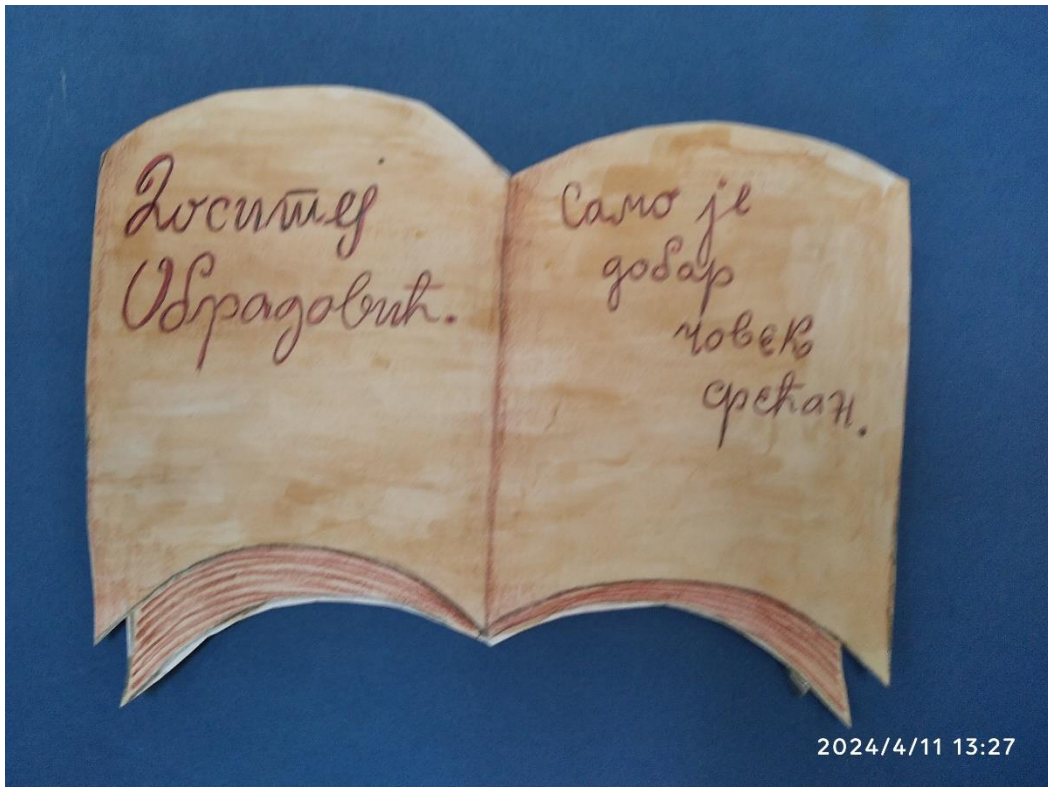 Доситеј
Обрадовић.
Само је
добар
човек
срећан.
2024/4/11 13:27